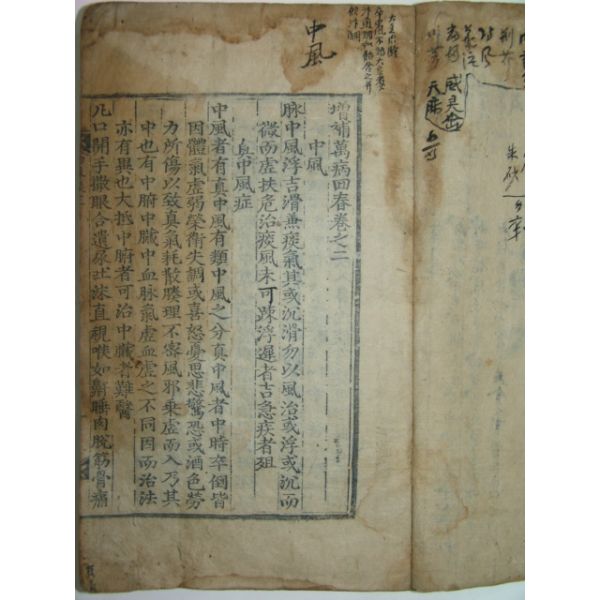 中風
增補萬病回春卷之二
中風
脉中風浮吉滑兼痰氣其或沉滑勿以風治或浮或沉而
微而虛扶危治痰風未可踈浮遲者吉急疾者殂
眞中風症
中風者有真中風有類中風之分真中風者中時卒倒皆
因體氣虛弱榮衛失調或喜怒憂思悲驚恐或酒色勞
力所傷以致真氣耗散腠理不密風邪乘虛而入乃其
中也有中腑中臟中血脉氣虛血虛之不同因而治法
亦有異也大抵中腑者可治中臟者難醫
凡口開手撒眼合遺尿吐沫直視喉如鼾睡肉脫筋骨痛
荊芥
威灵仙
天麻
朱砂